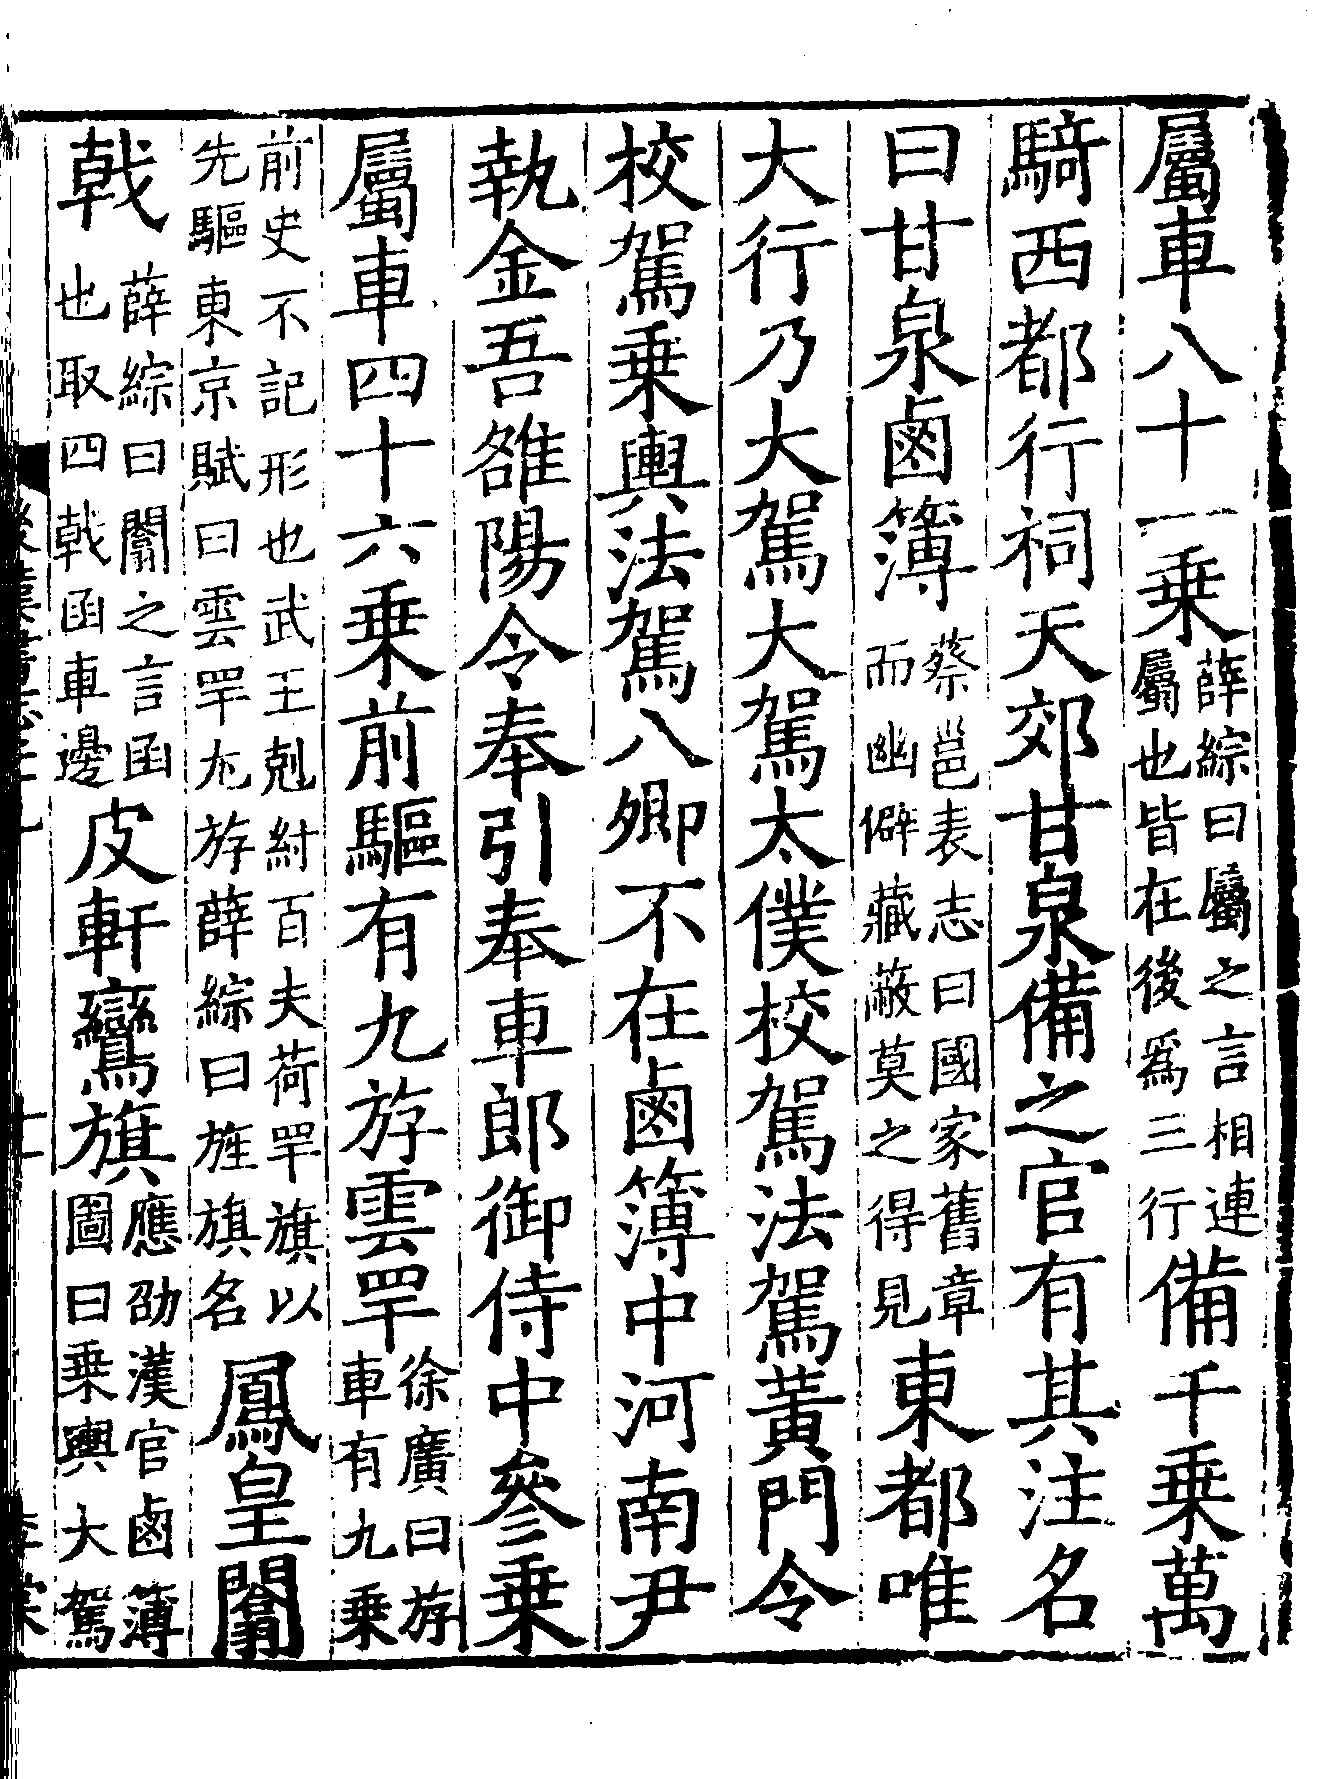 屬車八十一乗薛綜曰屬之言相連屬也皆在後爲三行備千乗萬
騎西都行祠天郊甘泉備之官有其注名
曰甘泉鹵簿蔡邕表志曰國家舊章而幽僻藏蔽莫之得見東都唯
大行乃大駕大駕太僕校駕法駕黃門令
校駕乗輿法駕八卿不在鹵簿中河南尹
執金吾雒陽令奉引奉車郎御侍中參乗
屬車四十六乗前驅有九斿雲䍐徐廣曰斿車有九乗
前史不記形也武王剋紂百夫荷䍐旗以先驅東京賦曰雲䍐九斿薛綜曰旌旗名鳳皇闟
戟薛綜曰闟之言函也取四戟函車邊皮軒鸞旗應劭漢官鹵簿圖曰乗輿大駕